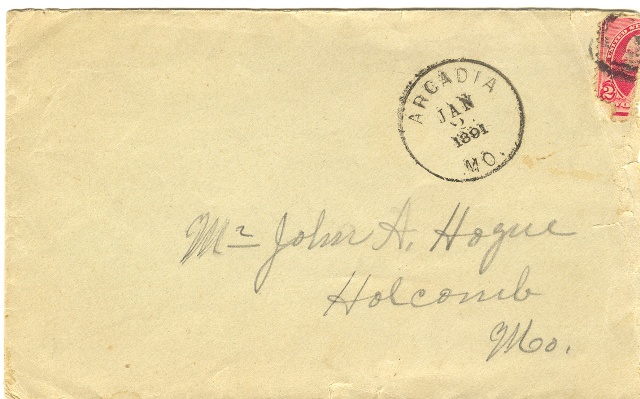 ARCADIA
JAN
2
1891
MO.
2
Mr John A. Hogue
Holcomb
Mo.